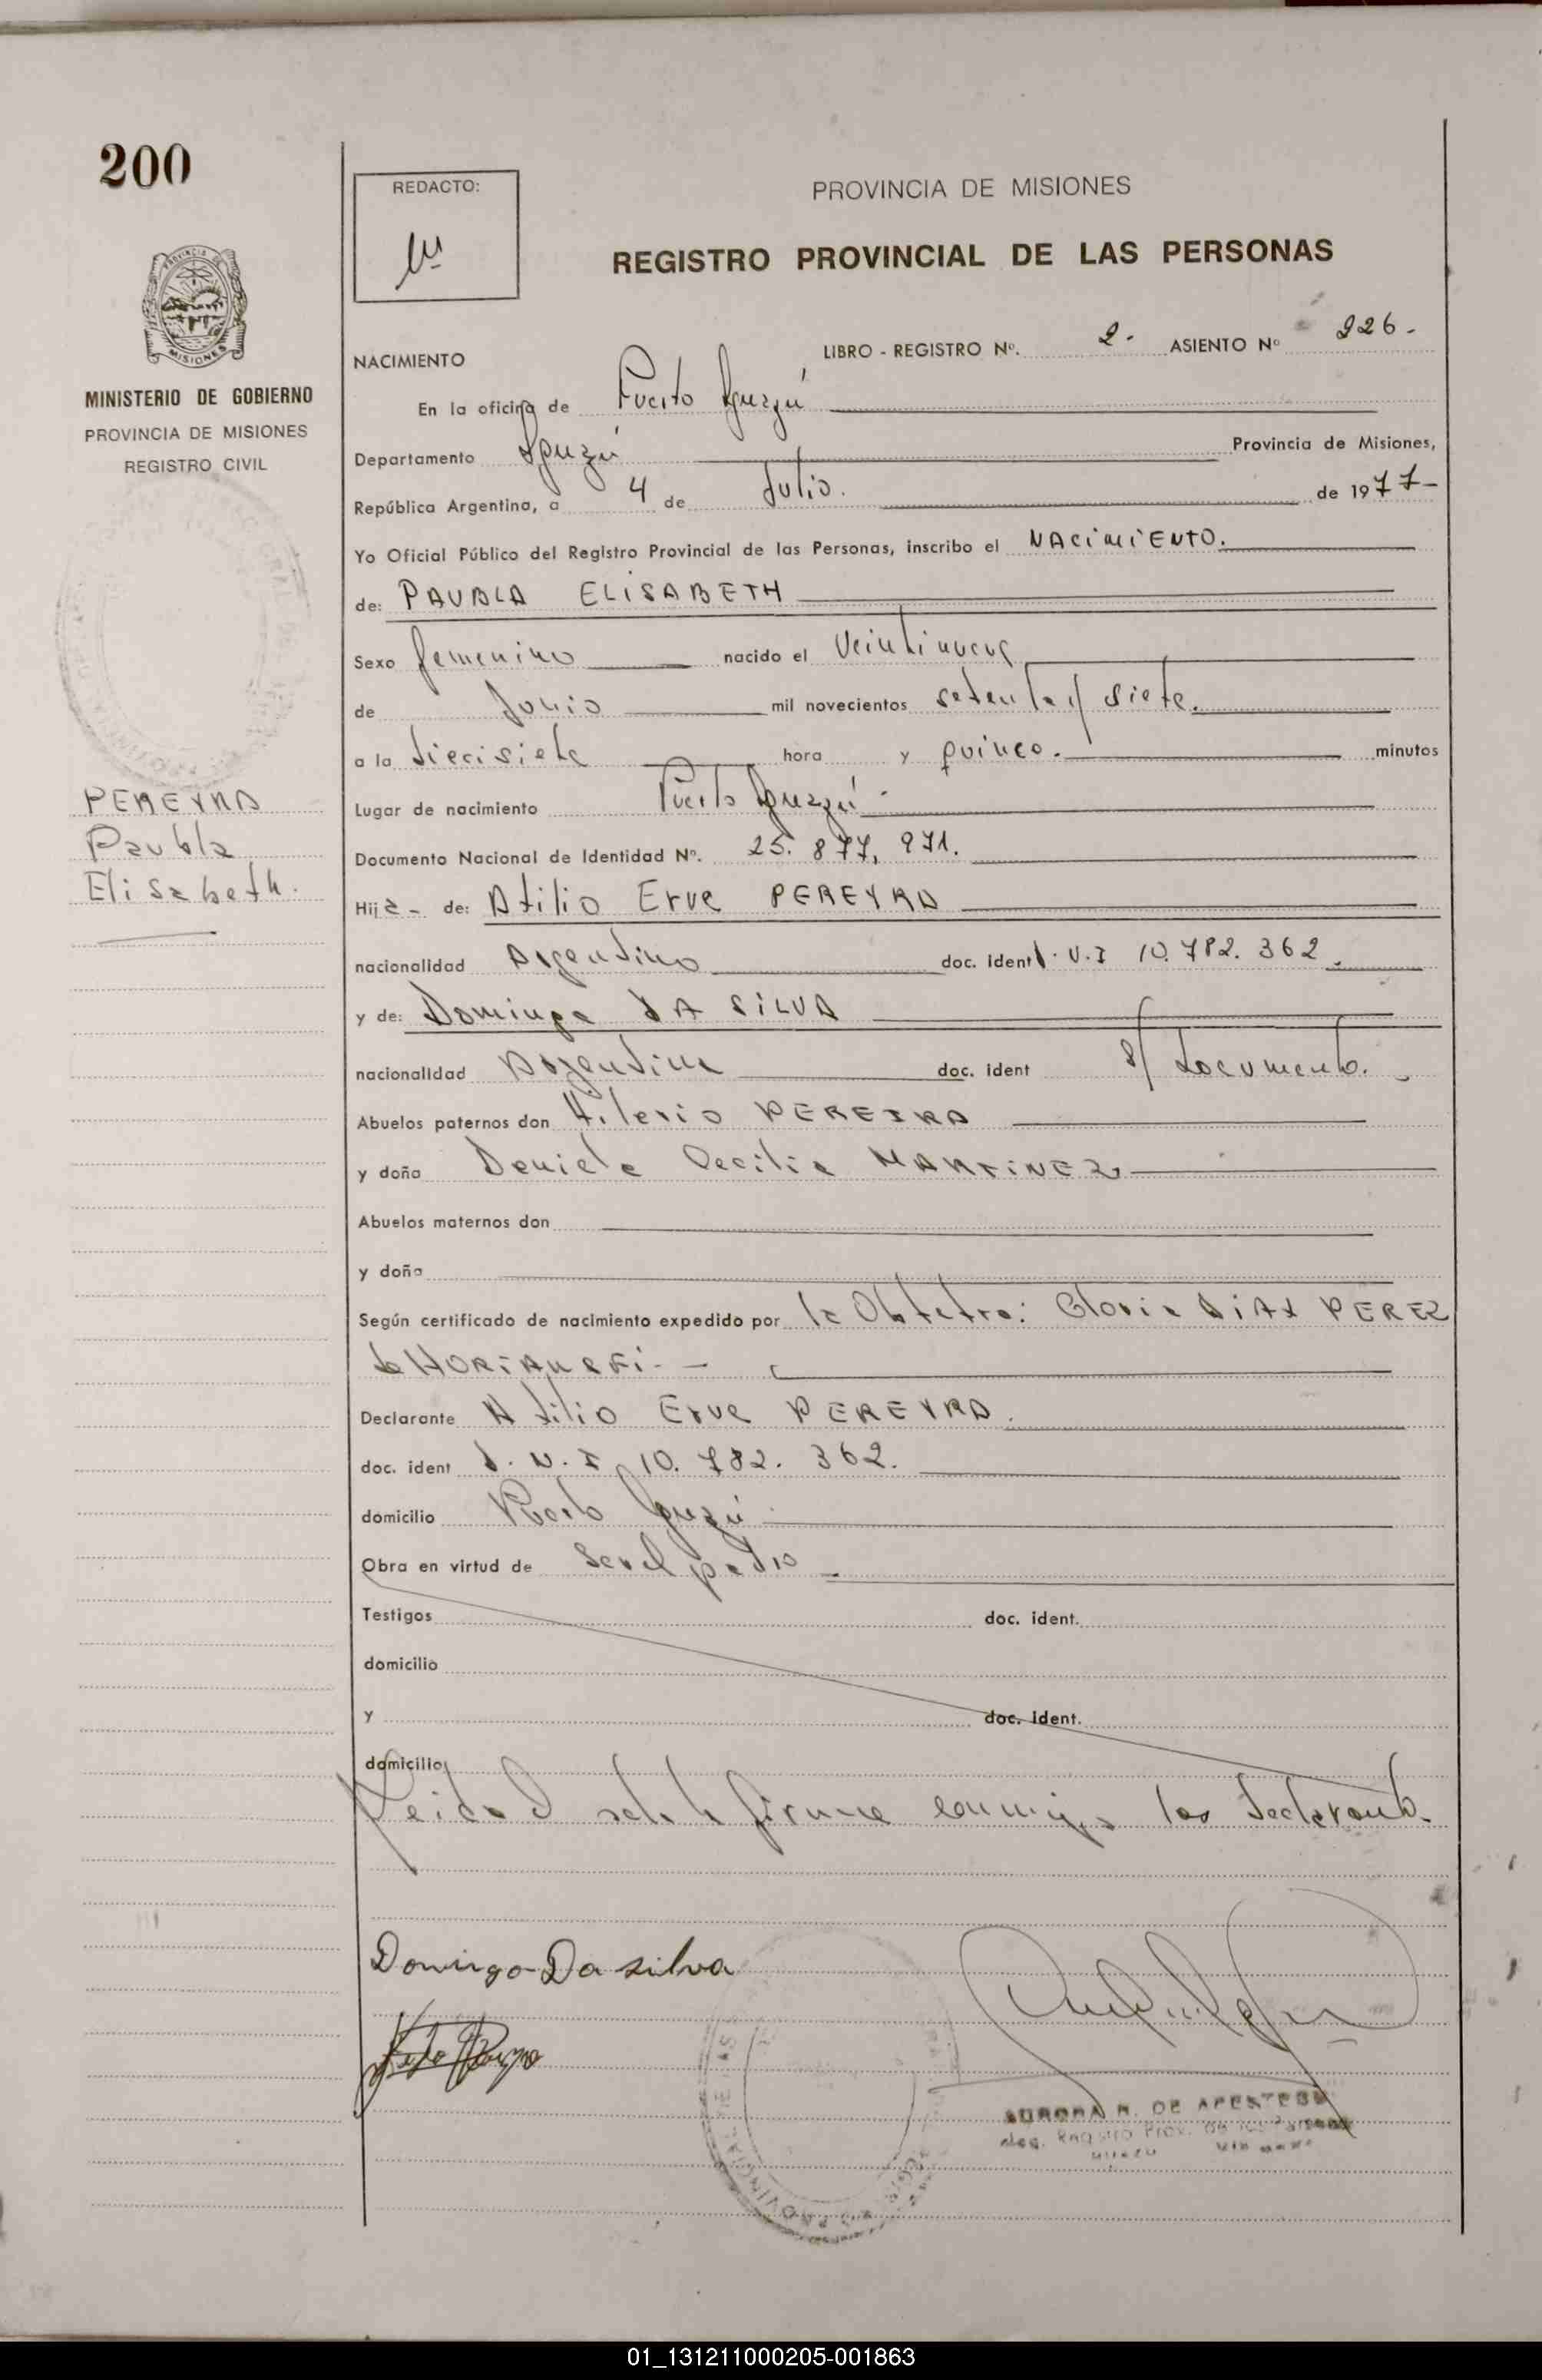 200
REDACTO:
PROVINCIA DE MISIONES
REGISTRO PROVINCIAL DE LAS PERSONAS
MISIONES
MINISTERIO DE GOBIERNO
PROVINCIA DE MISIONES
REGISTRO CIVIL
LIBRO - REGISTRO Nº. 2. ASIENTO Nº 226.-
NACIMIENTO
En la oficina de Puerto Iguazú
Departamento Iguazú Provincia de Misiones,
República Argentina, a 4 de Julio. de 1977-
Yo Oficial Público del Registro Provincial de las Personas, inscribo el NACIMIENTO.
de: PAUBLA ELISABETH
Sexo femenino nacido el veintinueve
de Junio mil novecientos setenta y siete.
a la diecisiete hora y quince. minutos
PEREYRA
Paubla
Elisabeth.
Lugar de nacimiento Puerto Iguazú.
Documento Nacional de Identidad Nº. 25.877.971.
Hija- de: Atilio Erve PEREYRA
nacionalidad Argentino doc. ident D.N.I 10.782.362.
y de: Dominga DA SILVA
nacionalidad Argentina doc. ident s/ documento.
Abuelos paternos don Hilerio PEREIRA
y doña Daniela Cecilia MARTINEZ
Abuelos maternos don
y doña
Según certificado de nacimiento expedido por la Obstetra: Gloria DIAZ PEREZ
de
Declarante Atilio Erve PEREYRA.
doc. ident D.N.I 10.782.362.
domicilio Puerto Iguazú
Obra en virtud de ser el padre
Testigos doc. ident.
domicilio
y doc. ident.
domicilio
Leida el acta la firman conmigo los declarante.
Domingo Da silva
AURORA R. DE
Registro Prov. de las Personas
01_131211000205-001863